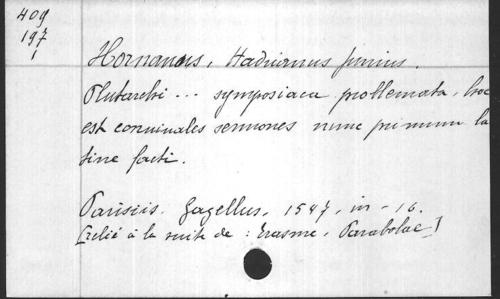 409
197
1
Hornanus, Hadrianus Junius.
Plutarchi ... symposiaca problemata, hoc
est conuiuales sermones nunc primum la
tine facti.
Parisiis. Gazellus, 1547, in-16.
[relié à la suite de : Erasme, Parabolae]